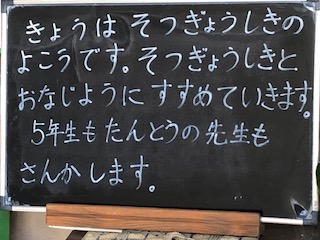 きょうは そつぎょうしきの
よこうです。そつぎょうしきと
おなじように すすめていきます。
5年生も たんとうの 先生も
さんかします。